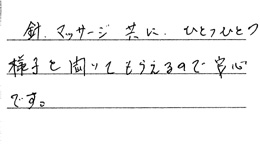 針、マッサージ 共に、ひとつひとつ
様子を聞いてもらえるので安心
です。